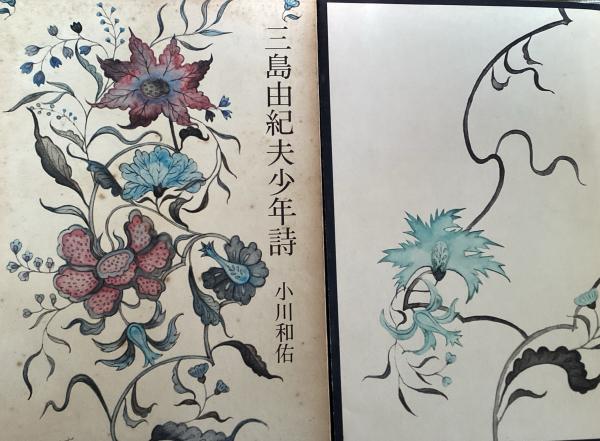 三島由紀夫少年詩
小川和佑